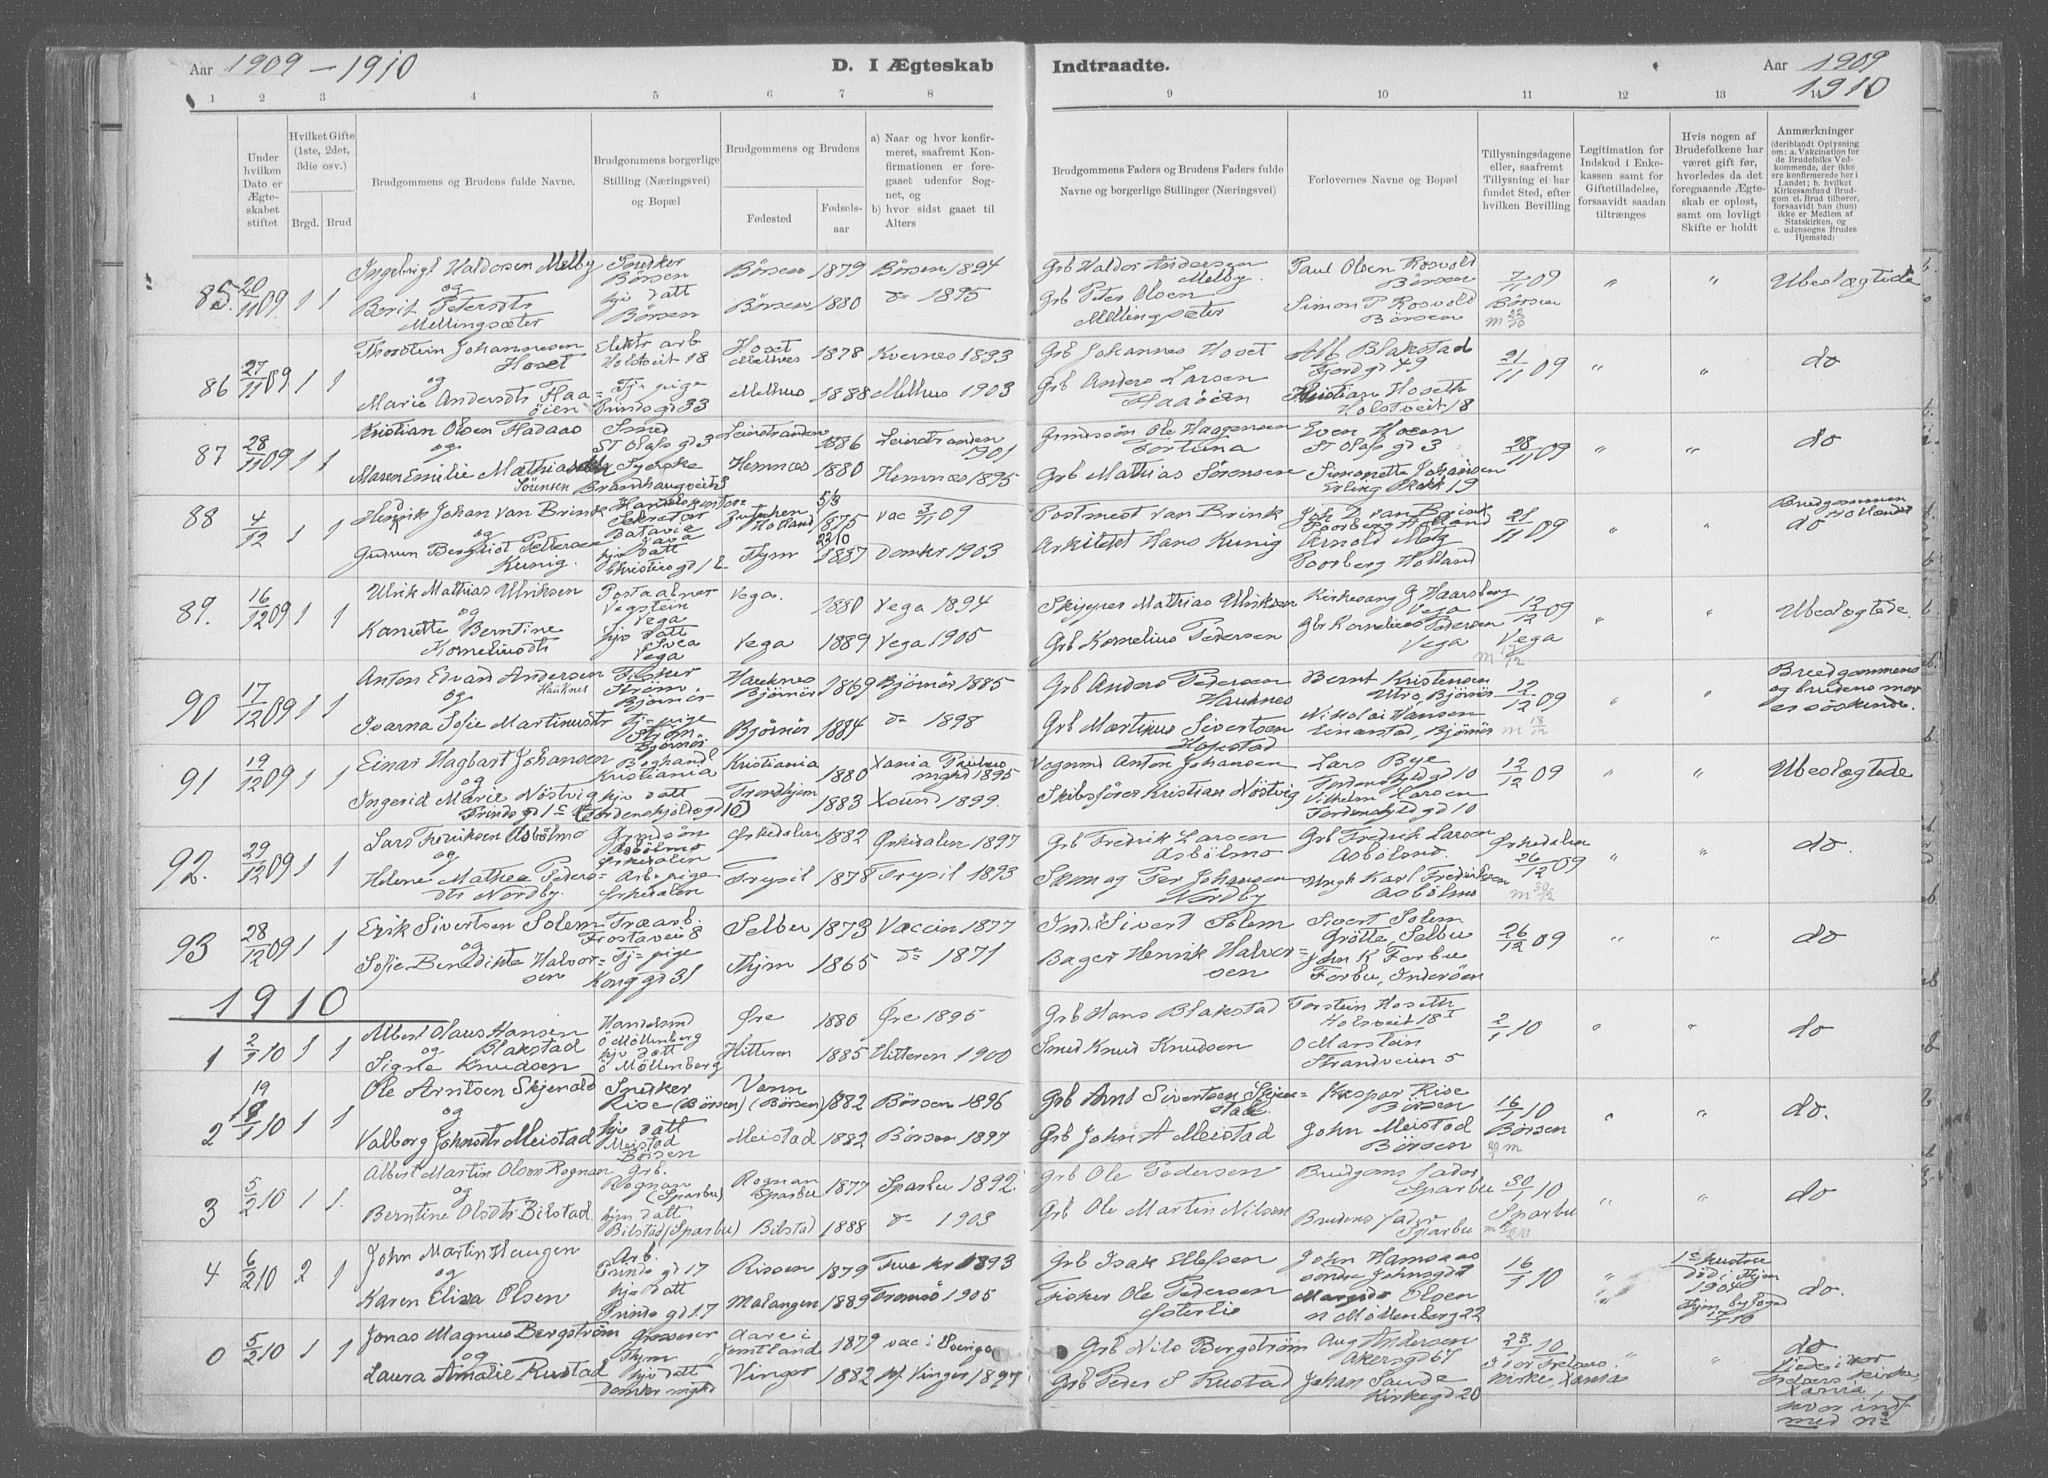 Aar 1909 – 1910
D. I Ægteskab Indtraadte.
Aar 1909
1910
1 2 3 4 5 6 7 8 9 10 11 12 13 14
Under hvilken Dato er Ægteskabet stiftet
Hvilket Gifte (1ste, 2det, 3die osv.)
Brgd. Brud
Brudgommens og Brudens fulde Navne.
Brudgommens borgerlige Stilling (Næringsvei) og Bopæl
Brudgommens og Brudens
Fødested
Fødselsaar
a) Naar og hvor konfirmeret, saafremt Konfirmationen er foregaaet udenfor Sognet, og
b) hvor sidst gaaet til Alters
Brudgommens Faders og Brudens Faders fulde Navne og borgerlige Stillinger (Næringsvei)
Forlovernes Navne og Bopæl
Tillysningsdagene eller, saafremt Tillysning ei har fundet Sted, efter hvilken Bevilling
Legitimation for Indskud i Enkekassen samt for Giftetilladelse, forsaavidt saadan tiltrænges
Hvis nogen af Brudefolkene har været gift før, hvorledes da det foregaaende Ægteskab er opløst, samt om lovligt Skifte er holdt
Anmærkninger (deriblandt Oplysning om: a. Vakcination for de Brudefolks Vedkommende, der ikke ere konfirmerede her i Landet; b. hvilket Kirkesamfund Brudgom el. Brud tilhører, forsaavidt han (hun) ikke er Medlem af Statskirken, og c. udensogns Brudes Hjemsted)
85. 20/11 09 1 1 Ingebrigt Haldorsen Melby Snedker Børsen Børsen 1879 Børsen 1894 Grb Haldor Andersen Melby. Paul Olsen Rosvold Børsen 7/11 09 " " Ubeslægtede
og
Berit Petersdtr Mellingsæter hjv datt Børsen Børsen 1880 do 1895 Grb Peter Olsen Mellingsæter Simon P Rosvold Børsen Børsen m 22/10
86 27/11 09 1 1 Thorstein Johannesen Hoset Elektr arb Holstveit 18 Hoset 1878 Kvernes 1893 Grb Johannes Hoset Alb Blakstad Fjordgd 49 21/11 09 " " do
og
Marie Andersdtr Flaaøien Tj= pige Prinds gd 33 Melhus 1888 Melhus 1903 Grb Anders Larsen Flaaøien Kristian Hoseth Holstveit 18
87 28/11 09 1 1 Kristian Olsen Smed St Olafs gd 3 Leinstranden 1886 Leinstranden 1901 Ole Haagensen Fortuna Even Hoem St Olafs gd 3 28/11 09 " " do
og
Maren Emilie Mathias Sørensen Syerske Brandhaugveit 3 Hemnæs 1880 Hemnæs 1895 Grb Mathias Sørensen Simonette Johansen Erling 19
88 4/12 1 1 Hendrik Johan van Brink Sekretær Batavia Java Zutphen Holland 5/3 1875 vac 3/11 09 Postmest van Brink Joh D van Brink Holland 21/11 09 " " Brudgommen Hollænder do
og
Gudrun Bergliot Pettersen Kunig. hjv datt Christiesgd 12 Thjm 22/10 1887 Domkr 1903 Arkitekt Hans Kunig Arnold Holland
89. 16/12 09 1 1 Ulrik Mathias Ulriksen Postaabner Vegstein Vega Vega. 1880 Vega 1894 Skipper Mathias Ulriksen Kirkesang G Haarsberg Vega 12/12 09 " " Ubeslægtede.
og
Kanutte Berntine Korneliusdtr hjv datt Vega Vega 1889 Vega 1905 Grb Kornelius Pedersen Gbr Kornelius Pedersen Vega Vega m
90 17/12 09 1 1 Anton Edvard Andersen Hauknes Fisker Strøm Bjørnør Hauknes Bjørnør 1869 Bjørnør 1885 Grb Anders Pedersen Hauknes Bernt Kristensen Utrø, Bjørnør 12/12 09 " " Brudgommens og brudens mor er søskende.
og
Ivarna Sofie Martinusdtr Tj= pige Strøm Bjørnør Bjørnør 1884 do 1898 Grb Martinus Sivertsen Hopstad Nikolai Hansen Einarstad, Bjørnør m 18/12
91 19/12 09 1 1 Einar Hagbart Johansen Boghand Kristiania Kristiania 1880 Xania Paulus mghd 1895 Vognmd Anton Johansen Lars Bye Tordenskjolds gd 10 12/12 09 " " Ubeslægtede
og
Ingerid Marie Nøstvig hjv datt Prinds gd 1c (Tordenskjoldsgd 10) Trondhjem 1883 Xsund 1899. Skibsfører Kristian Nøstvig Vilhelm Larsen Tordenskjold gd 10
92. 29/12 09 1 1 Lars Fredriksen Asbølmo Grdsøn Asbølmo Orkedalen Orkedalen 1882 Orkedalen 1897 Grb Fredrik Larsen Asbølmo Grb Fredrik Larsen Asbølmo. Orkedalen 26/12 09 " " do.
og
Helene Mathea Pedersdtr Nordby. Arb pige Orkedalen Trysil 1878 Trysil 1893 Skomag Per Johansen Nordby Ungk Karl Fredriksen Asbølmo m 30/12
93 28/12 09 1 1 Erik Sivertsen Solem Træarb. Frostaveit 8 Selbu 1873 Vaccin 1877 Inds Sivert Solem Sivert Solem Grøtte, Selbu 26/12 09 " " do
og
Sofie Benedikte Halvorsen Tj= pige Konggd 31 Thjm 1865 do 1871 Bager Henrik Halvorsen John K Forbu Forbu, Inderøen
1910
1 2/1 10 1 1 Albert Olaus Hansen Blakstad Handelsmd ö Möllenberg Øre 1880 Øre 1895 Grb Hans Blakstad Torstein Hoseth Holsveit 18 I 2/1 10 " " do
og
Signe Knudsen hjv datt ö Möllenberg Hitteren 1885 Hitteren 1900 Smed Knud Knudsen O Marstein Strandveien 5
2 19/1 10 1 1 Ole Arntsen Skjenald Snedker Rise (Børsen) Venn (Børsen) 1882 Børsen 1896 Grb Arnt Sivertsen Kaspar Rise Børsen 16/1 10 Børsen " " do.
og
Valborg Johnsdtr Meistad hjv datt Meistad Børsen Meistad 1882 Børsen 1897 Grb John A Meistad John Meistad Børsen m
3 5/2 10 1 1. Albert Martin Olsen Rognan Grb. Rognan (Sparbu) Rognan Sparbu 1877 Sparbu 1892. Grb Ole Pedersen Brudgoms fader Sparbu 30/1 10 " " do
og
Berntine Olsdtr Bilstad. hjm datt Bilstad (Sparbu) Bilstad 1888 do 1903 Grb Ole Martin Nilsen Brudens fader Sparbu Sparbu m
4 6/2 10 2 1 John Martin Haugen Arb. Prinds gd 17 Rissen 1879 Frue kr 1893 Grb Isak Ellefsen John Hamsaas søndre Johnsgd 16/1 10 " 1ste hustru død i Thjem 1904 Thjm byfoged do.
og
Karen Elisa Olsen hjv datt Prinds gd. 17 Malangen 1889 Tromsø 1905 Fisker Ole Pedersen Olsen n Möllenberg 22
0 5/2 10 1 1 Jonas Magnus Bergström Grosserer Thjm Aare i Jemtland 1879 vac i Sverige Grb Nils Bergström Aug Andersen Akersgd 67 23/1 10 " " do
og
Laura Amalie Rustad hjv datt Domkr mghd Vinger 1882 Vinger 1897 Grb Peder S Rustad Johan Sande Kirkegd 20 I Vor Frelsers kirke, Xania Viede i vor Frelsers kirke, Xania, hvor indf med no